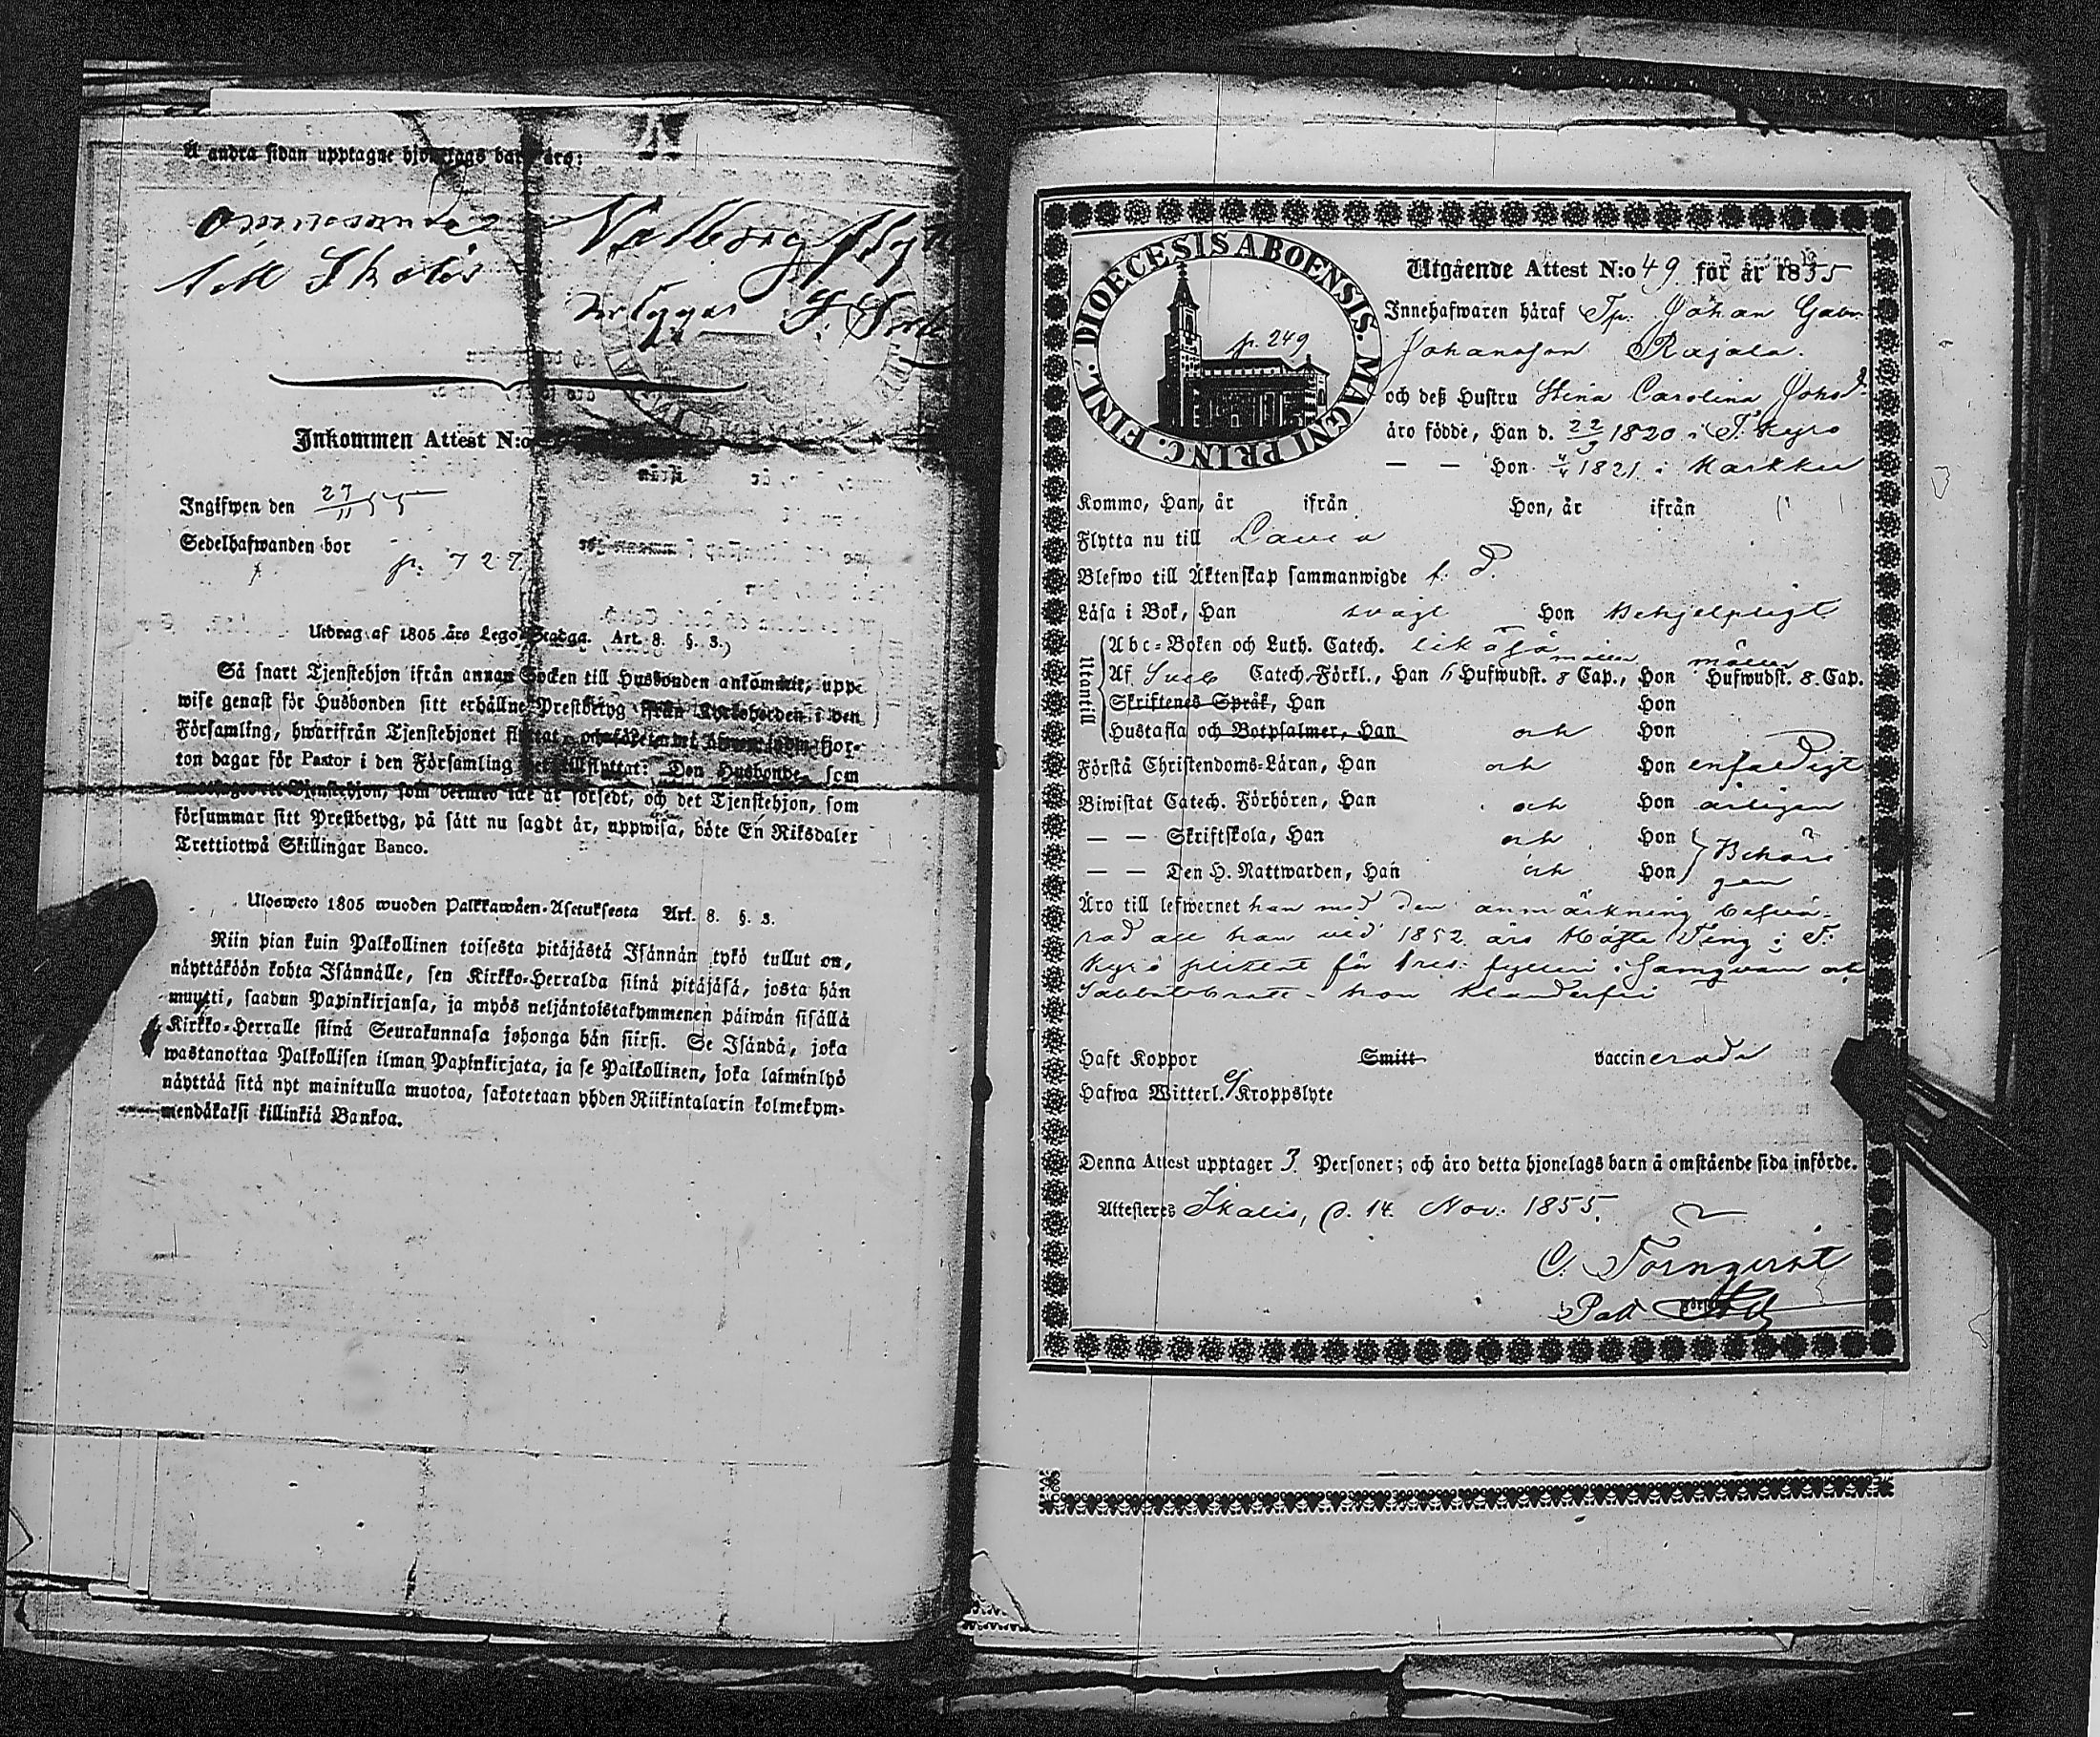 Å andra sidan upptagne hjonelags barn äro:
ommonnda Valborg
till Skatis
Inkommen Attest N:o
Ingifwen den 27/11 55
Sedelhafwanden bor
p. 727
Utdrag af 1805 års Lego-Stadga. Art. 8. §. 3.)
Så snart Tjenstehjon ifrån annan Socken till Husbonden ankommit, uppe
wise genast för Husbonden sitt erhållne Prestbetyg ifrån Kyrkoherden i den
Församling, hwarifrån Tjenstehjonet flyttat, och före innom fjor-
ton dagar för Pastor i den Församling det tillflyttat: Den Husbonde, som
mottager ett Tjenstehjon, som dermed icke är försedt, och det Tjenstehjon, som
försummar sitt Prestbetyg, på sätt nu sagdt är, uppwisa, böte En Riksdaler
Trettiotwå Skillingar Banco.
Ulosweto 1805 wuoden Palkkawäen-Asetuksesta Art. 8. §. 3.
Niin pian kuin Palkollinen toisesta pitäjästä Isännän tykö tullut on,
näyttäköön kohta Isännälle, sen Kirkko-Herralda siinä pitäjäsä, josta hän
muutti, saadun Papinkirjansa, ja myös neljäntoistakymmenen päiwän sisällä
Kirkko-Herralle siinä Seurakunnasa johonga hän siirsi. Se Isändä, joka
wastanottaa Palkollisen ilman Papinkirjata, ja se Palkollinen, joka laiminlyö
näyttää sitä nyt mainitulla muotoa, sakotetaan yhden Riikintalarin kolmekym-
mendäkaksi killinkiä Bankoa.
DIOECESIS ABOENSIS. MAGNI PRINC. FINL.
p. 249
Utgående Attest N:o 49 för år 1855
Innehafwaren häraf Tp. Johan Gabr.
Johansson Rajala.
och deß Hustru Stina Carolina Johsd.
äro födde, Han d. 22/9 1820 i T. Kyro
— — Hon 4/4 1821 i Karkku
Kommo, Han, år ifrån Hon, år ifrån
Flytta nu till Lavia
Blefwo till Äktenskap sammanwigde f. d.
Läsa i Bok, Han svagt Hon Behjelpligt
Utantill
Abc-Boken och Luth. Catech. likaså
Af Sveb Catech. Förkl., Han 6 Hufwudst. 8 Cap., Hon Hufwudst. 8. Cap.
Skriftenes Språk, Han Hon
Hustafla och Botpsalmer, Han och Hon
Förstå Christendoms-Läran, Han och Hon enfaldigt
Biwistat Catech. Förhören, Han och Hon årligen
— — Skriftskola, Han och Hon Behöri
— — Den H. Nattwarden, Han och Hon gen
Äro till lefwernet han med den anmärkning befrä-
jad att han vid 1852 års Höste Ting i T.
Kyro pliktat för fylleri samt
Sabbatsbrott - hon klanderfri
Haft Koppor Smitt vaccinerade
Hafwa Witterl. Ej Kroppslyte
Denna Attest upptager 3. Personer; och äro detta hjonelags barn å omstående sida införde.
Attesteres Ikalis, d. 14. Nov. 1855.
C. Törnqvist
Past